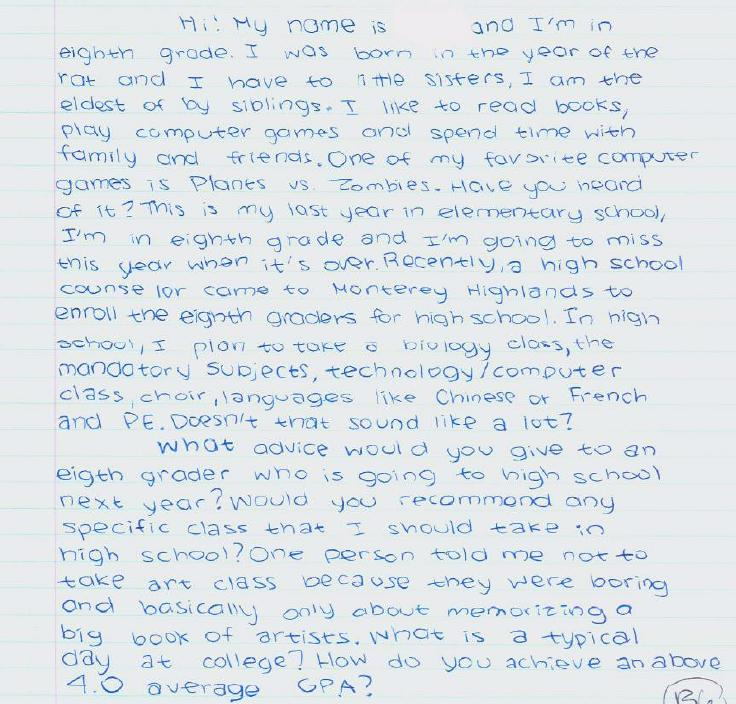 Hi! My name is and I'm in
eighth grade. I was born in the year of the
rat and I have to little sisters, I am the
eldest of by siblings. I like to read books,
play computer games and spend time with
family and friends. One of my favorite computer
games is Plants vs. Zombies. Have you heard
of it? This is my last year in elementary school,
I'm in eighth grade and I'm going to miss
this year when it's over. Recently, a high school
counselor came to Monterey Highlands to
enroll the eighth graders for high school. In high
school, I plan to take a biology class, the
mandatory subjects, technology/computer
class, choir, languages like Chinese or French
and PE. Doesn't that sound like a lot?
What advice would you give to an
eigth grader who is going to high school
next year? Would you recommend any
specific class that I should take in
high school? One person told me not to
take art class because they were boring
and basically only about memorizing a
big book of artists. What is a typical
day at college? How do you achieve an above
4.0 average GPA?